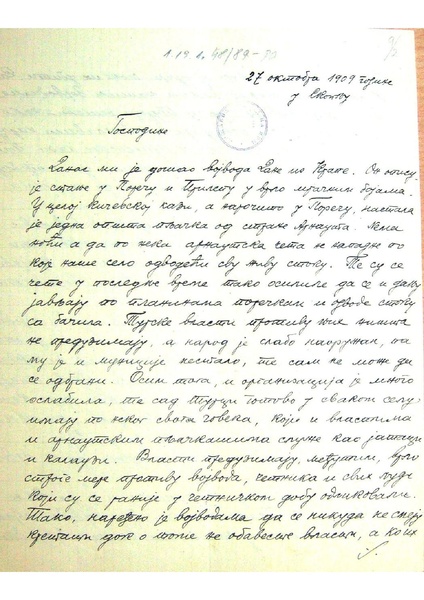 1.19.1.48/89-70
27 октобра 1909 године
у Скопљу
Господине
Данас ми је дошао војвода Цане из Кране. Он описује
је стање у Поречу и Прилепу у врло мрачним бојама.
У целој Кичевској кази, а нарочито у Поречу, настала
је једна општа пљачка од стране Арнаута. Нема
ноћи а да по нека арнаутска чета не нападне по
које наше село одводећи сву живу стоку. Те су се
чете у последње време тако осилиле да се и дању
јављају по планинама поречким и одводе стоку
са бачила. Турске власти противу њих ништа
не предузимају, а народ је слабо наоружан, па
му је и муниције нестало, те сам не може да
се одбрани. Осим тога, и организација је много
ослабила, те сад Турци готово у сваком селу
имају по неког свога човека, који и властима
и арнаутским пљачкашима служе као јатаци
и калаузи. Власти предузимају, међутим, врло
строге мере противу војвода, четника и свих људи
који су се раније у четничком добу одликовали.
Тако, наређено је војводама да се никуда не смеју
кретати док о томе не обавесте власти, а ко их